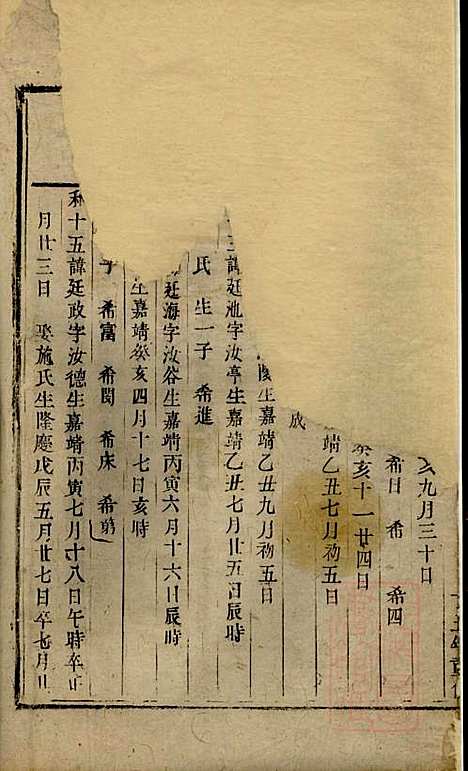 亥九月三十日
希日 希 希四
癸亥十一廿四日
靖乙丑七月初五日
成
隆生嘉靖乙丑九月初五日
三諱廷池字汝亭生嘉靖乙丑七月廿五日辰時
氏 生一子 希進
廷海字汝谷生嘉靖丙寅六月十六日辰時
生嘉靖癸亥四月十七日亥時
子 希富 希閔 希床 希弟
利十五諱廷政字汝德生嘉靖丙寅七月十八日午時卒正
月廿三日 娶施氏生隆慶戊辰五月廿七日卒七月廿